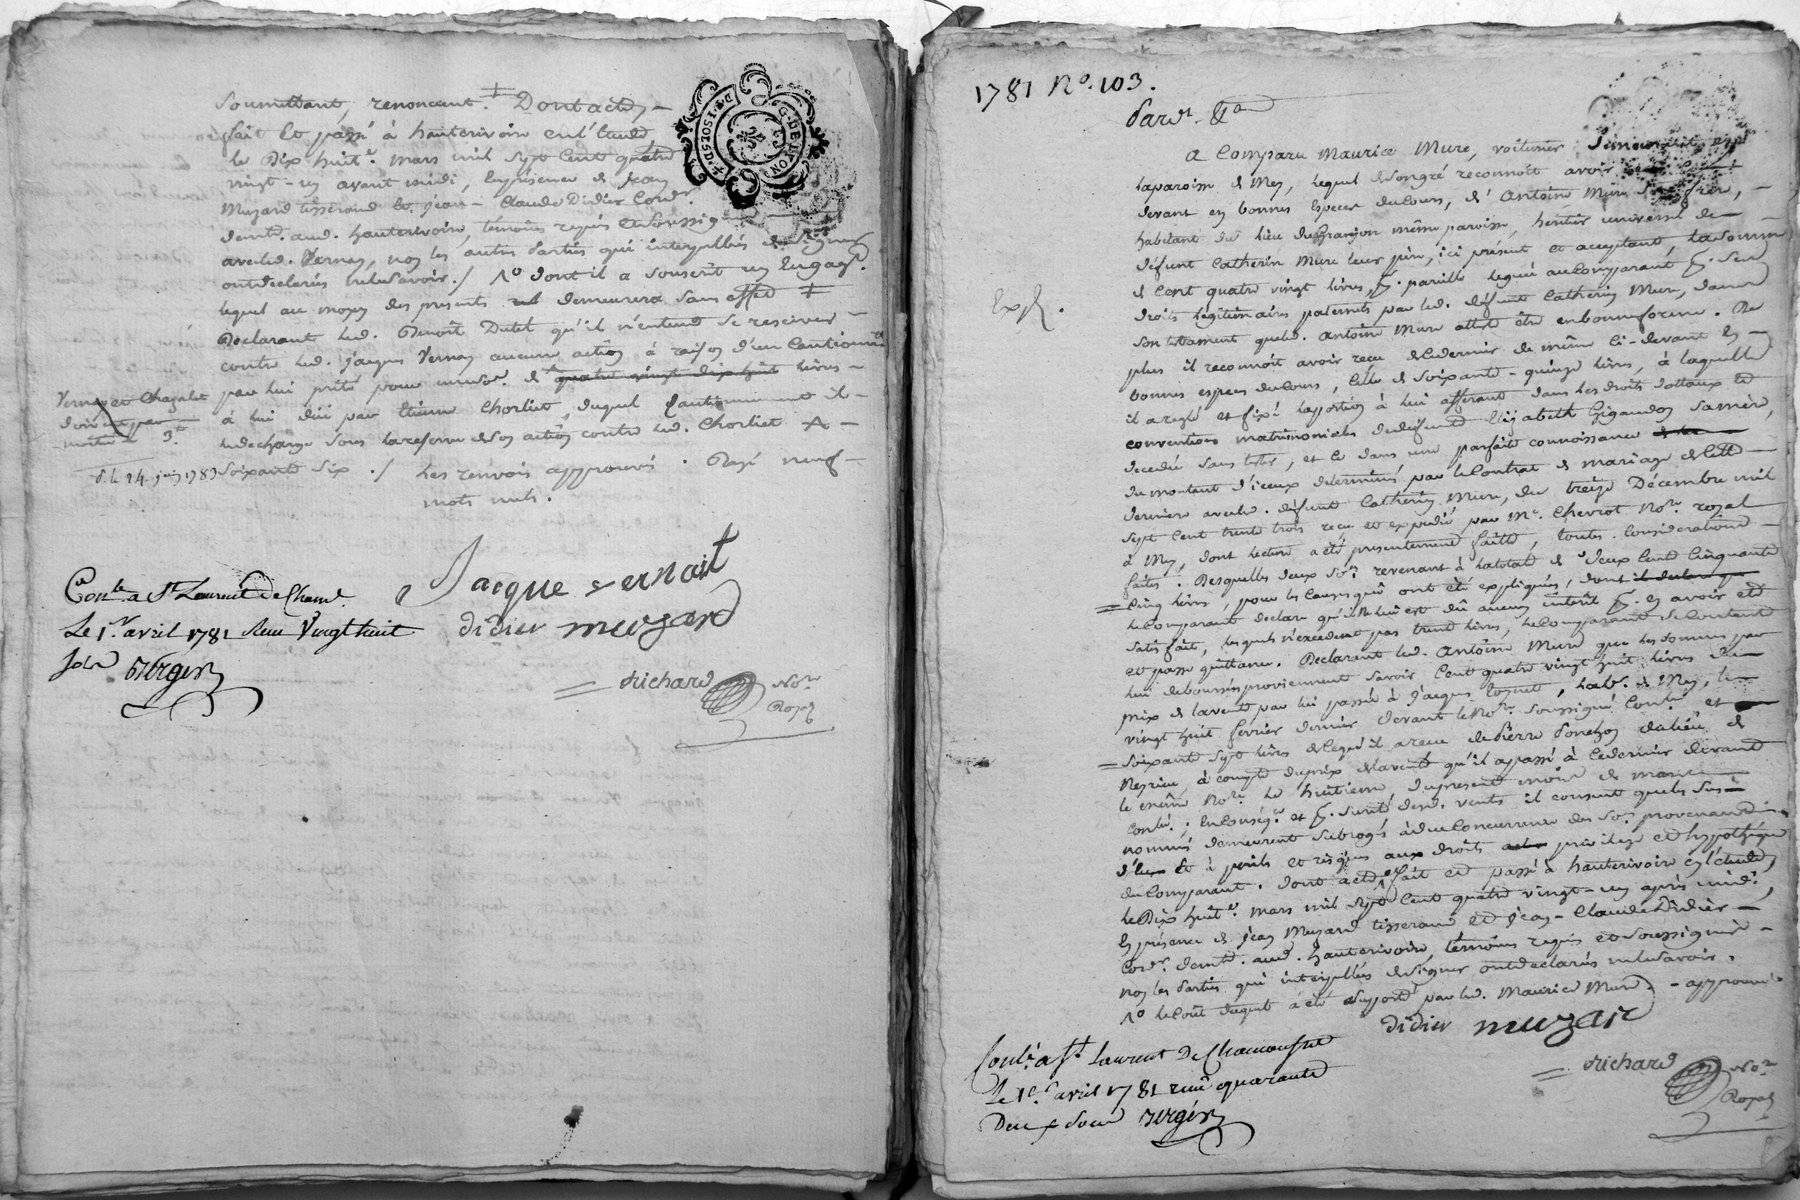 soumettant, renonceant ‡ Dont acte,
fait et passé à hauterivoire en l'étude
le Dix huit.e mars mil sept cent quatre
vingt-un avant midi, en présence de Jean
Muzard tisserand et jean-Claude Didier Cord.r
dem.t aud. hauterivoire, témoins requis et soussig.
avec led. Vernay, non les autres parties qui interpellées de signer
ont declarées ne le savoir ./ 1º dont il a souscrit un engag.t
lequel au moyen des presents demeurera sans effet ‡
Declarant led. Benoît Dutel qu'il n'entend se reserver
contre led. jacques Vernay aucune action à raison d'un Cautionne
par lui prêté pour de quatre vingt dix huit livres
à lui dûe par Etienne Chorliet, duquel Cautionnement il
le decharge sous la reserve de son action contre led. Chorliet
soixante six ./ Les renvois approuvés. Rayé neuf
mots nuls.
Vernay et Chazalet
doivent par
moitié 3.#
d. le 24 juin 1783
G. DE LYON
2. S. 
Jacque vernait
didier muzard
Richard No.re
Royal
Con.lé a S.t Laurent De Cham.t
Le 1.er avril 1781 Reçu Vingt huit
sols Verger
1781 Nº. 103.
Pard.t &a
a Comparu Maurice Mure, voiturier
la paroisse de Mey, lequel de son gré reconnoit avoir
devant en bonnes especes du Cours, d'Antoine Mure son frère,
habitant du lieu du Granjon même paroisse, héritier universel de
défunt Catherin Mure leur père, ici présent et acceptant, la somme
de Cent quatre vingt livres, p. pareille leguée au Comparant p. ses
droits légitimaires paternels par led. défunt Catherin Mure, dans
son testament que led. Antoine Mure atteste être en bonne forme. De
plus il reconnoit avoir reçu dud. dernier de même Ci-devant en
bonnes especes du Cours, Celle de soixante-quinze livres, à laquelle
il a reglé et fixé la portion à lui afférant dans les droits dottaux et
conventions matrimoniales de defunte Elizabeth Gigandon sa mère,
decedée sans tester, et ce dans une parfaite connoissance
du montant d'iceux determinés par le Contrat de mariage de cette
derniere avec led. défunt Catherin Mure, du treize Décembre mil
sept Cent trente trois, reçu et expedié par M.e Chevrot No.re royal
à Mey, dont lecture a été presentement faitte, toutes Considerations
faites. Desquelles deux so.es revenant à la total de deux Cent Cinquante
Cinq livres, pour les Causes qui ont été expliquées, dont
le Comparant declare qu'il ne lui est dû aucun intérêt p. en avoir été
satisfait, lesquels n'excedent pas trente livres, le Comparant se Contente
et passe quittance. Declarant led. Antoine Mure que les sommes par
lui deboursées proviennent savoir Cent quatre vingt huit livres du
prix de la vente par lui passée à Jacques , hab.t de Mey, le
vingt huit fevrier dernier devant le No.re soussigné Contr.lé et
soixante sept livres de ce qu'il a reçu de Pierre Ponchon du lieu de
Neyrieu, à compte du prix de la vente qu'il a passée à ce dernier devant
le même No.re le huitieme du present mois de mars
Con.lé ; En Conséq.ce et p. sureté desd. ventes il consent que les sus
nommés demeurent subrogés à due Concurrence des so.es provenant
d'eux et à perils et risques aux droits privilege et hypothéque
du Comparant. dont acte, fait et passé à hauterivoire en l'étude,
le Dix huit.e mars mil sept Cent quatre vingt-un après midi,
en présence de jean Muzard tisserand et jean-Claude Didier
Cord.r dem.t aud. hauterivoire, témoins requis et soussignés
non les Parties qui interpellées de signer ont declarées ne le savoir.
1º le coût duquel a été supporté par led. Maurice Mure. - approuvé.
Exp.
didier muzard
Richard No.re
Royal
Conlé a S.t Laurent De Chamousset
Le 1.er avril 1781 reçu quarante
Deux sous Verger